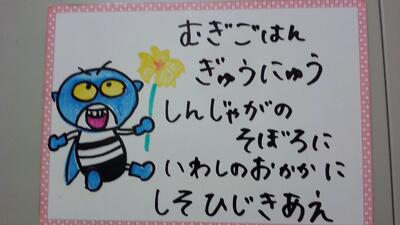 むぎごはん
ぎゅうにゅう
しんじゃがの
そぼろに
いわしのおかかに
しそひじきあえ